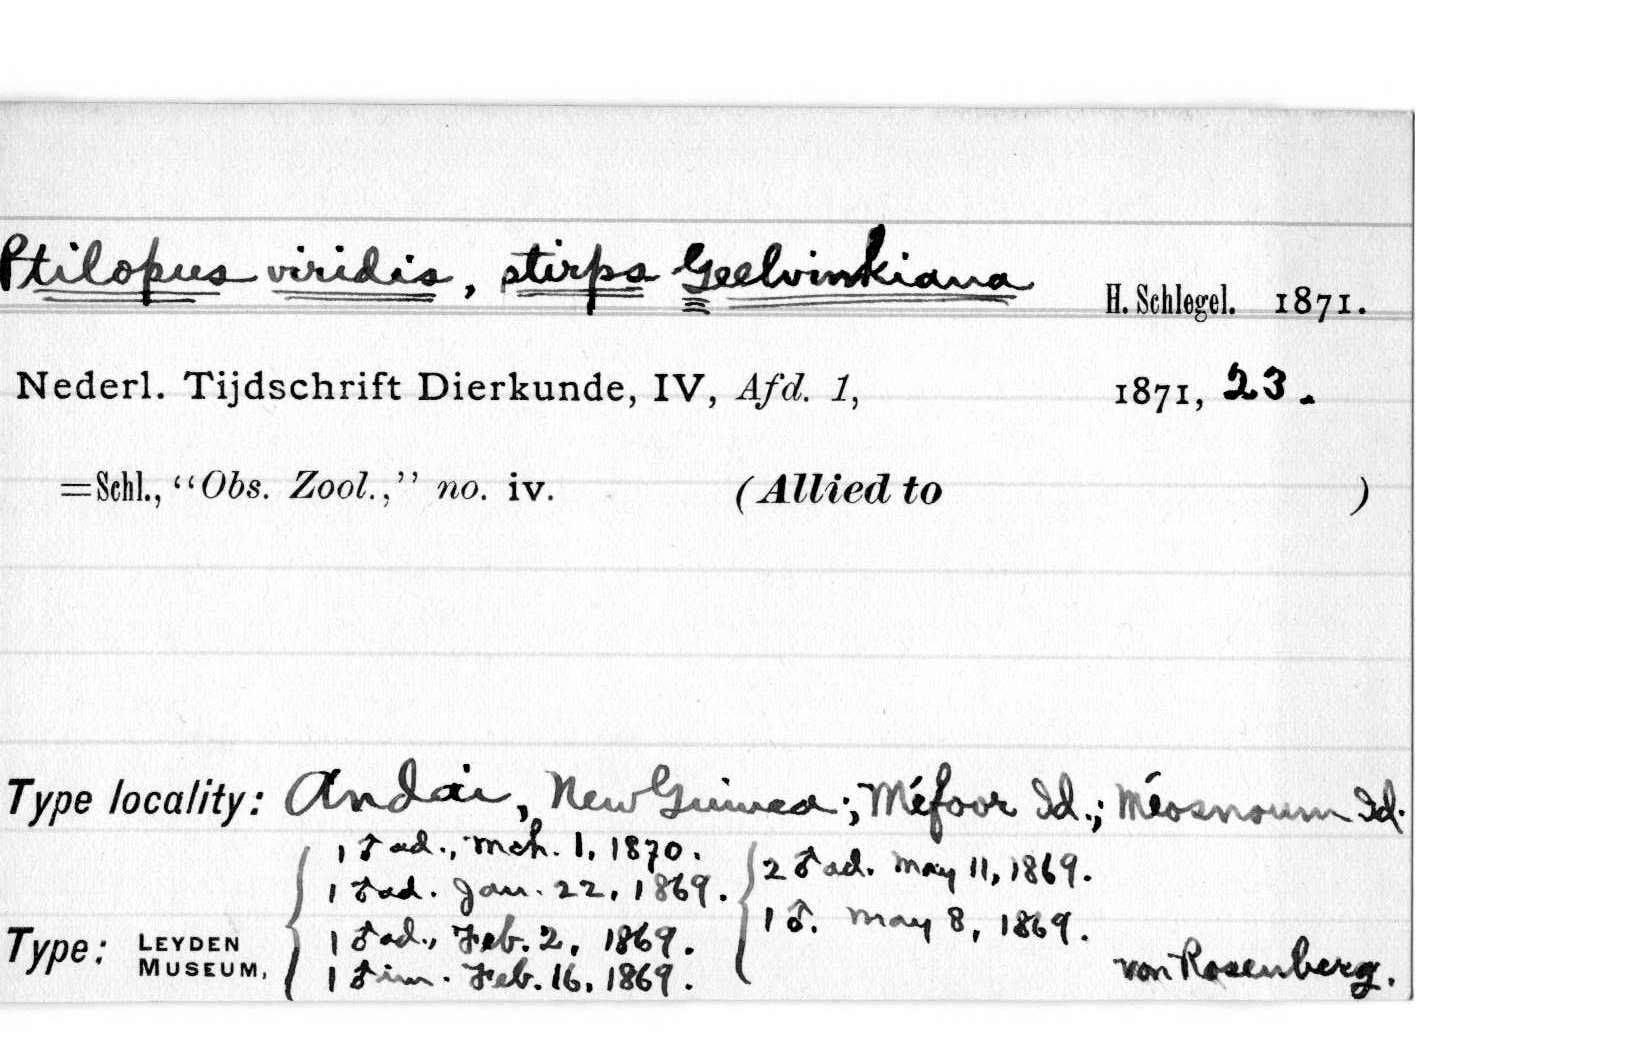 Ptilopus viridis, stirps Geelvinkiana H. Schlegel. 1871.
Nederl. Tijdschrift Dierkunde, IV, Afd. 1, 1871, 23.
=Schl., “Obs. Zool.,” no. iv. (Allied to )
Type locality: Andai, New Guinea; Méfoor Id.; Méosnoum Id.
1 ♂ ad., Mch. 1, 1870.
1 ♂ ad. Jan. 22, 1869.
1 ♂ ad., Feb. 2, 1869.
1 ♂ im. Feb. 16, 1869.
2 ♂ ad. May 11, 1869.
1 ♂. May 8, 1869.
Type: LEYDEN
MUSEUM,
von Rosenberg.